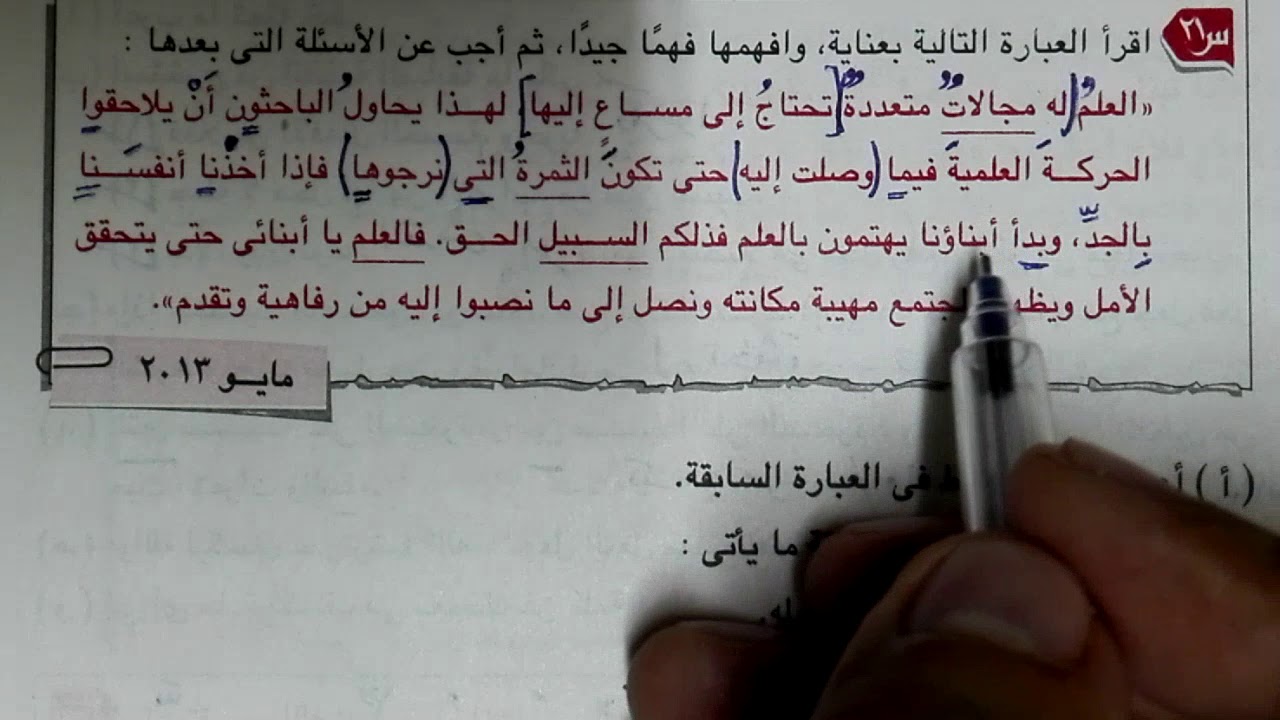 س٢١ اقرأ العبارة التالية بعناية، وافهمها فهمًا جيدًا، ثم أجب عن الأسئلة التى بعدها :
«العلمُ (له مجالاتٌ متعددةٌ [تحتاجُ إلى مساعٍ إليها] لهذا يحاولُ الباحثون أَنْ يلاحقوا
الحركةَ العلميةَ فيما (وصلت إليه) حتى تكونَ الثمرةُ التي (نرجوها) فإذا أخذْنا أنفسَنا
بِالجدِّ، وبدأ أبناؤنا يهتمون بالعلم فذلكم السبيل الحق. فالعلم يا أبنائى حتى يتحقق
الأمل مهيبة مكانته ونصل إلى ما نصبوا إليه من رفاهية وتقدم».
مايو ٢٠١٣
(أ) فى العبارة السابقة.
ما يأتى :